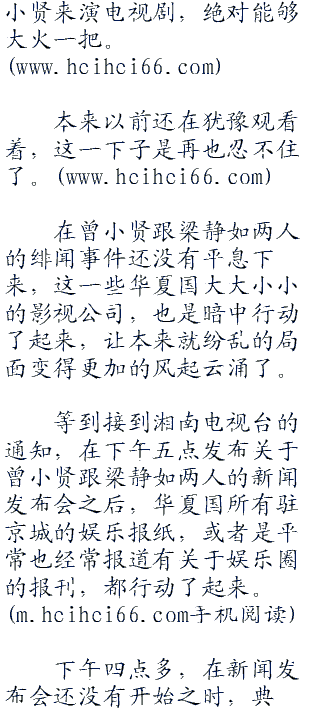 小贤来演电视剧，绝对能够
大火一把。
(www.hcihci66.com)
本来以前还在犹豫观看
着，这一下子是再也忍不住
了。(www.hcihci66.com)
在曾小贤跟梁静如两人
的绯闻事件还没有平息下
来，这一些华夏国大大小小
的影视公司，也是暗中行动
了起来，让本来就纷乱的局
面变得更加的风起云涌了。
等到接到湘南电视台的
通知，在下午五点发布关于
曾小贤跟梁静如两人的新闻
发布会之后，华夏国所有驻
京城的娱乐报纸，或者是平
常也经常报道有关于娱乐圈
的报刊，都行动了起来。
(m.hcihci66.com手机阅读)
下午四点多，在新闻发
布会还没有开始之时，典